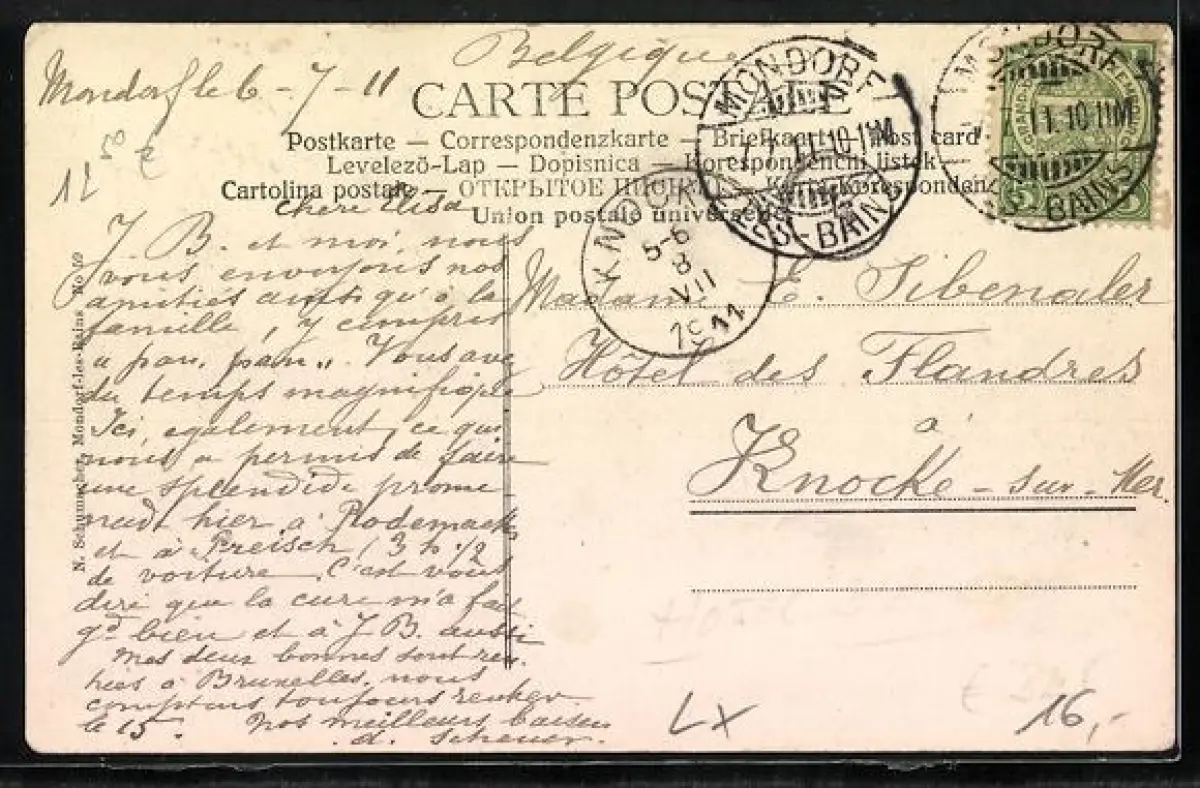 Belgique
Mondorf le 6-7-11
CARTE POSTALE
Postkarte — Correspondenzkarte — Briefkaart — Post card
Levelező-Lap — Dopisnica — Korespondenční lístek
Cartolina postale — ОТКРЫТОЕ ПИСЬМО — Karta korespondencyjna
Union postale universelle
MONDORF
10-11M
-BAINS
MONDORF
11.10-11M
-BAINS
KNOCKE
5-6
8
VII
1911
12
50
Chère Elisa
J. B. et moi, nous
vous envoyons nos
amitiés ainsi qu'à la
famille, y compris
Vous avez
du temps magnifique
Ici, également, ce qui
nous a permis de faire
une splendide prome-
nade hier à Rodemack
et à Preisch, 3 h 1/2
de voiture. C'est vous
dire que la cure m'a fait
gd bien et à J. B. aussi
Mes deux bonnes sont ren-
trées à Bruxelles, nous
comptons toujours rentrer
le 15. Nos meilleurs baisers
Scheuer.
Madame E. Sibenaler
Hôtel des Flandres
à
Knocke-sur-Mer.
N. Schumacher, Mondorf-les-Bains No 10
HOTEL
LX
16,-